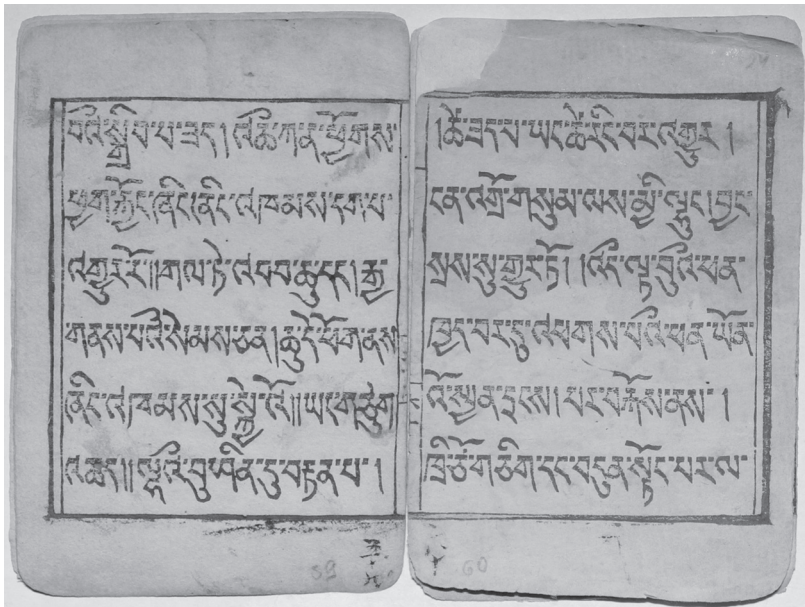 བའི་སྒྲིབ་པ་ཟད། འཆི་ཀ་ན་ཕྱོགས་
ཕྱག་རྐྱོང་ཞིང་ཞིང་ལ་ཁམས་དག་པ་
འགྱུར་རོ༎གལ་ཏེ་འབབ་ཆུ་དང།རྒྱ་
གནས་པའི་སེམས་ཅན།ཆུ་དེ་ཕོག་ནས
ཞིང་ལ་ཁམས་སུ་སྐྱེ་འོ༎ཡང་གཙུག་
འཆང༎ལྷའི་བུ་ཤིན་ཏུ་བརྟན་པ་།
།ཚེ་ཟད་པ་ཡང་ཚེ་རིང་བར་འགྱུར།
ངན་འགྲོ་གསུམ་ལས་མྱི་ལྟུང།བྱང་
སྲས་སུ་གྱུར་ཏོ། །འདི་ལྟ་བུའི་ཕན་
ཁྱད་བར་དུ་འཕགས་པའི་ཕན་ཡོན་
འོ་སྤྱན་དྲངས།པར་བརྐོས་ནས་།
ཁྲི་ཙོ་གཅིག་དང་བདུན་སྟོང་པར་ལ་
59
60